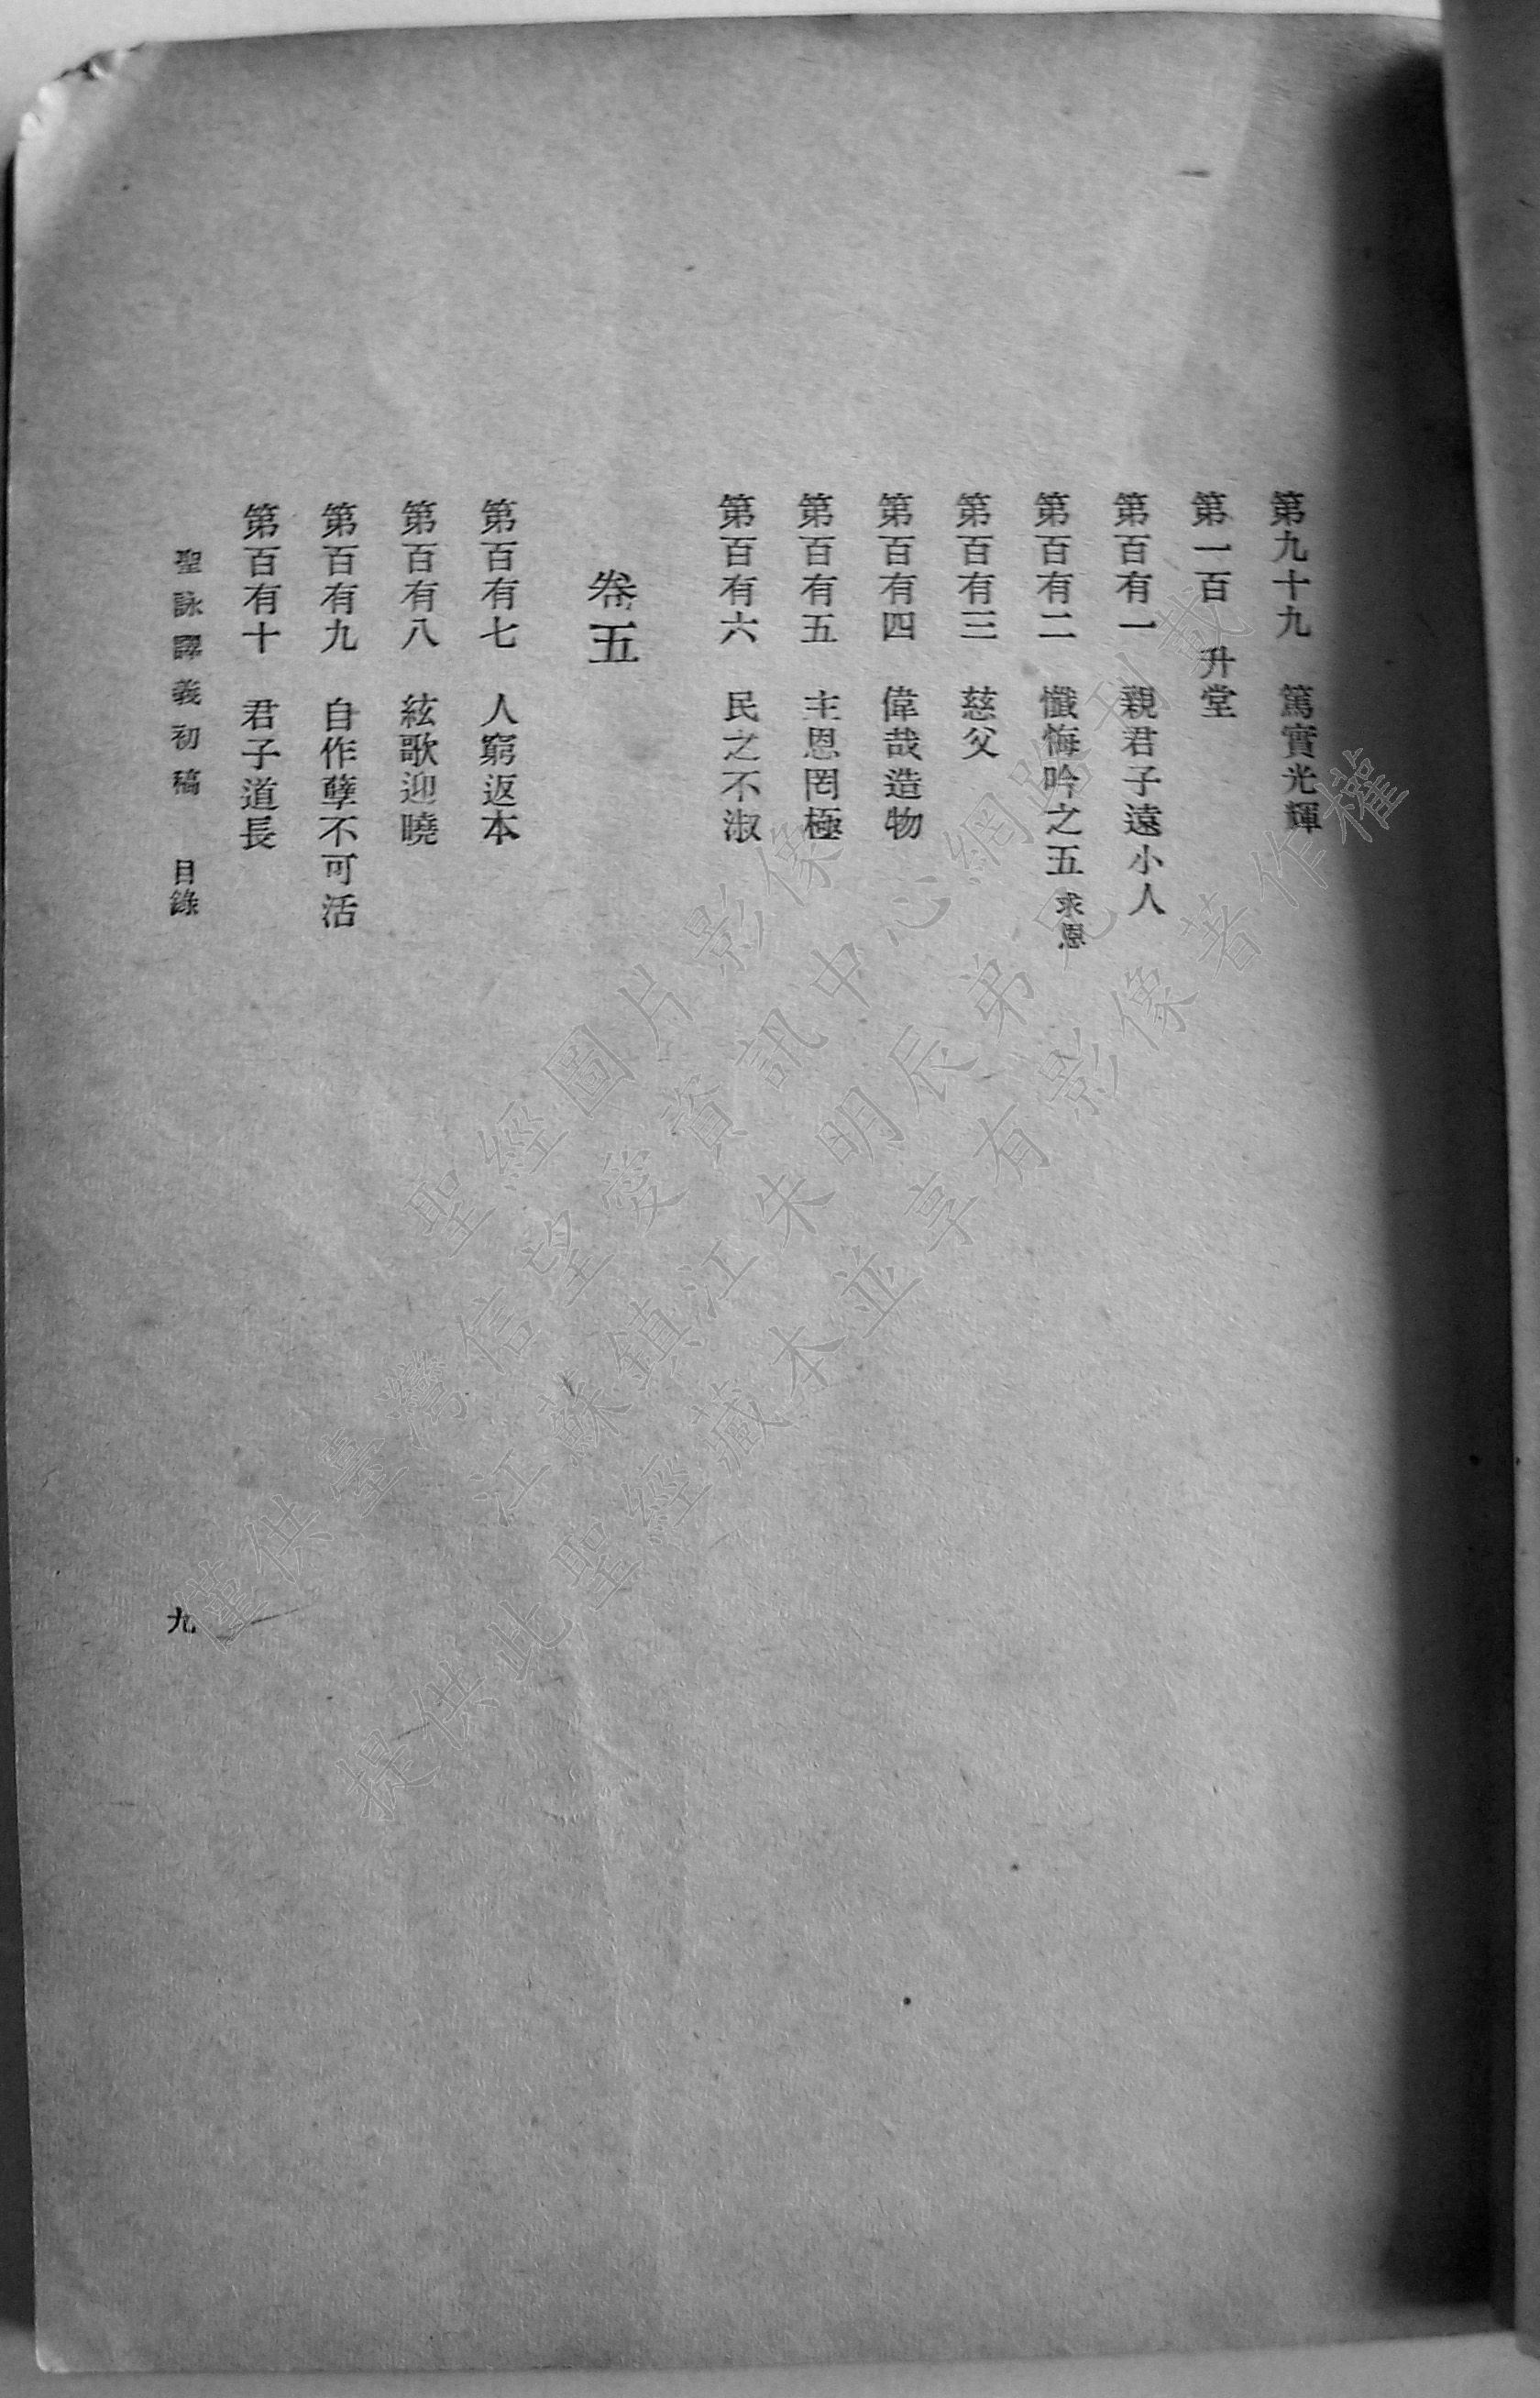 第九十九　篤實光輝
第一百　升堂
第百有一　親君子遠小人
第百有二　懺悔吟之五 求恩
第百有三　慈父
第百有四　偉哉造物
第百有五　主恩罔極
第百有六　民之不淑
卷五
第百有七　人窮返本
第百有八　絃歌迎曉
第百有九　自作孽不可活
第百有十　君子道長
聖詠譯義初稿　目錄
九
聖經圖片影像
僅供臺灣信望愛資訊中心網路刊載
江蘇鎮江朱明辰弟兄
提供此聖經藏本並享有影像著作權